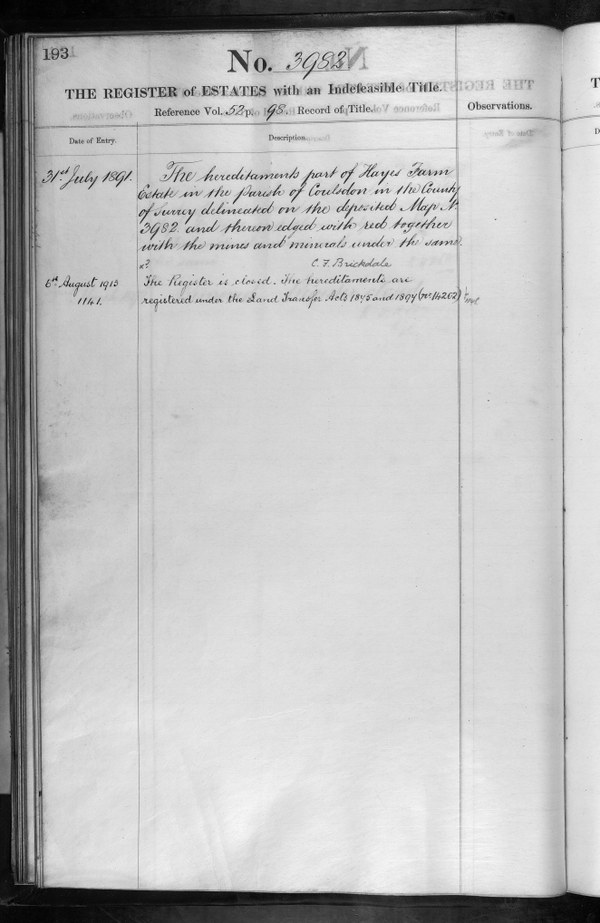 193
No. 3982
THE REGISTER of ESTATES with an Indefeasible Title.
Reference Vol. 52 p. 98. Record of Title.
Observations.
Date of Entry.
Description.
31st July 1891.
The hereditaments part of Hayes Farm
Estate in the parish of Coulsdon in the County
of Surrey delineated on the deposited Map No
3982 and thereon edged with red together
with the mines and minerals under the same.
C. F. Brickdale
6th August 1913
1141.
The Register is closed. The hereditaments are
registered under the Land Transfer Acts 1875 and 1897 (No 14202)